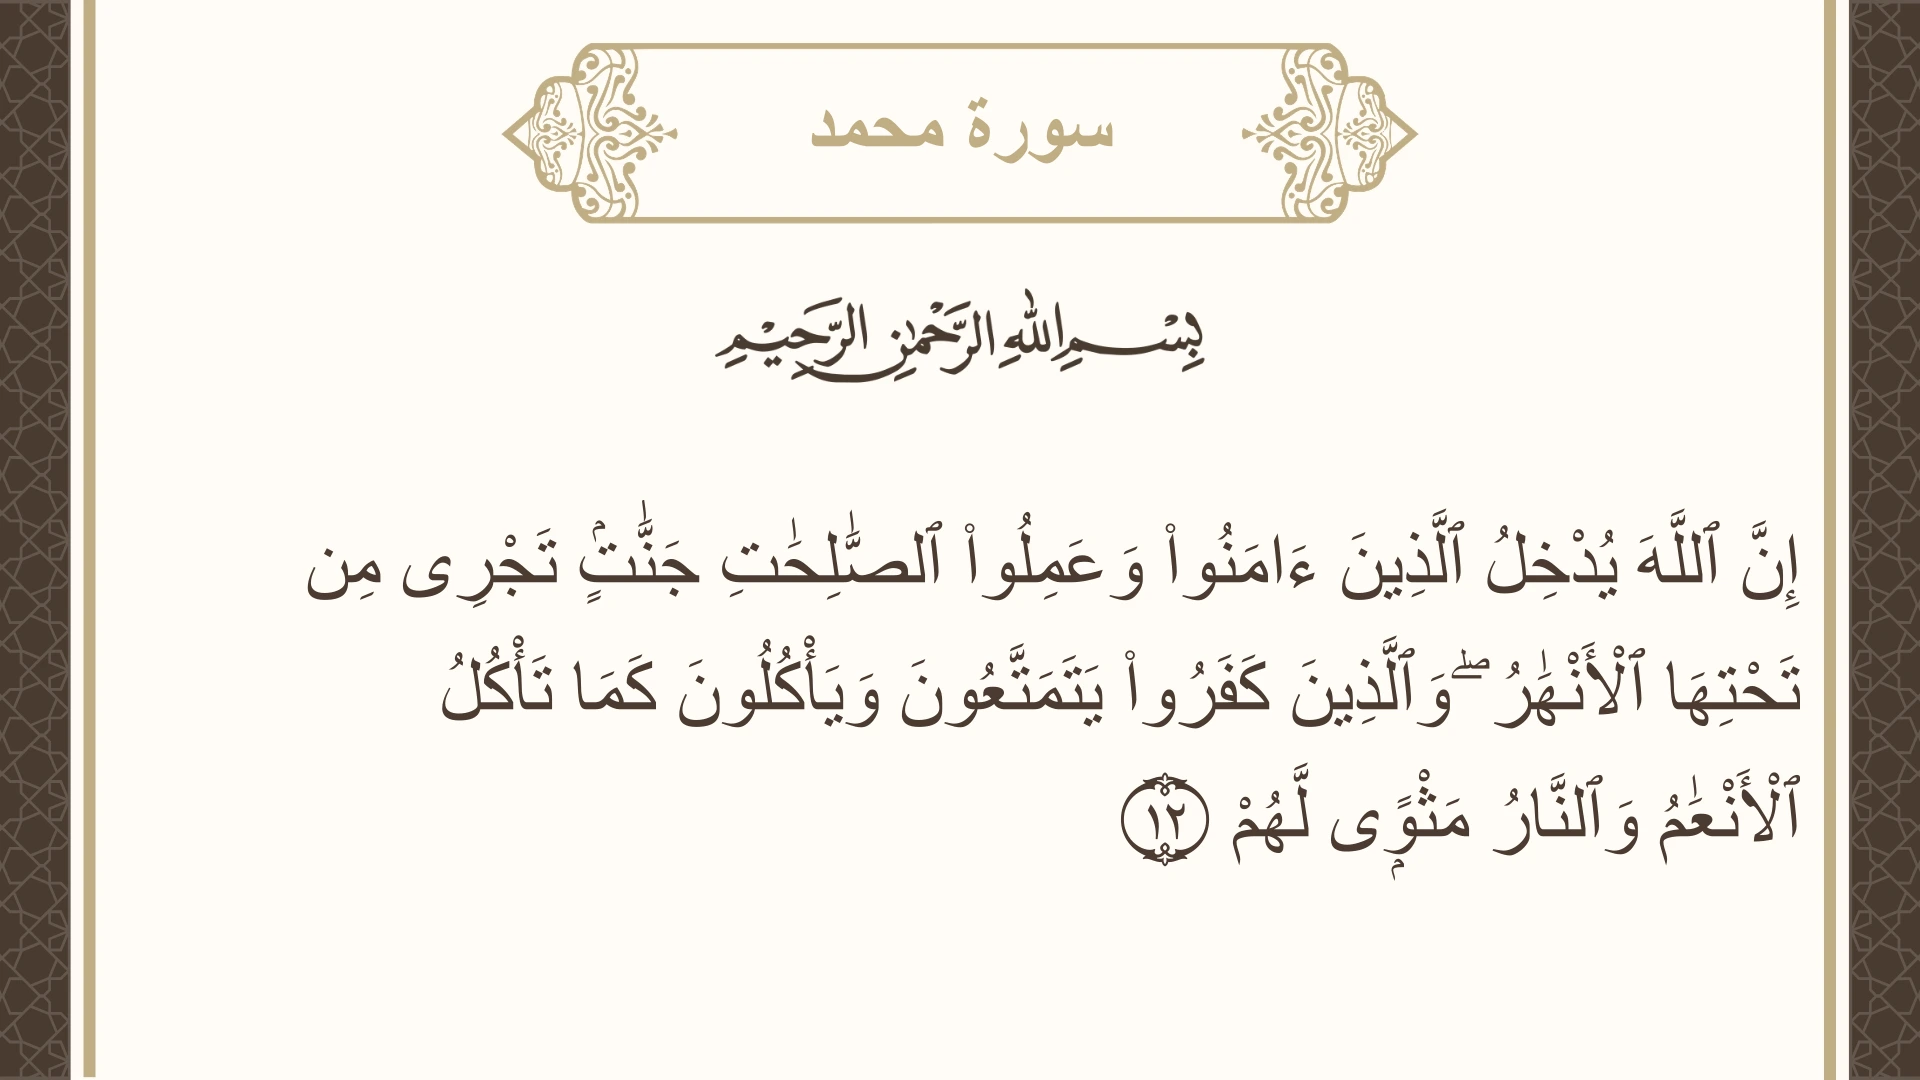 سورة محمد
بِسْمِ اللهِ الرَّحْمٰنِ الرَّحِيْمِ
إِنَّ ٱللَّهَ يُدْخِلُ ٱلَّذِينَ ءَامَنُوا۟ وَعَمِلُوا۟ ٱلصَّٰلِحَٰتِ جَنَّٰتٍۢ تَجْرِى مِن
تَحْتِهَا ٱلْأَنْهَٰرُ ۖ وَٱلَّذِينَ كَفَرُوا۟ يَتَمَتَّعُونَ وَيَأْكُلُونَ كَمَا تَأْكُلُ
ٱلْأَنْعَٰمُ وَٱلنَّارُ مَثْوًۭى لَّهُمْ ١٢